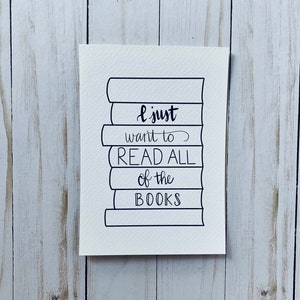 I just
want to
READ ALL
of the
BOOKS